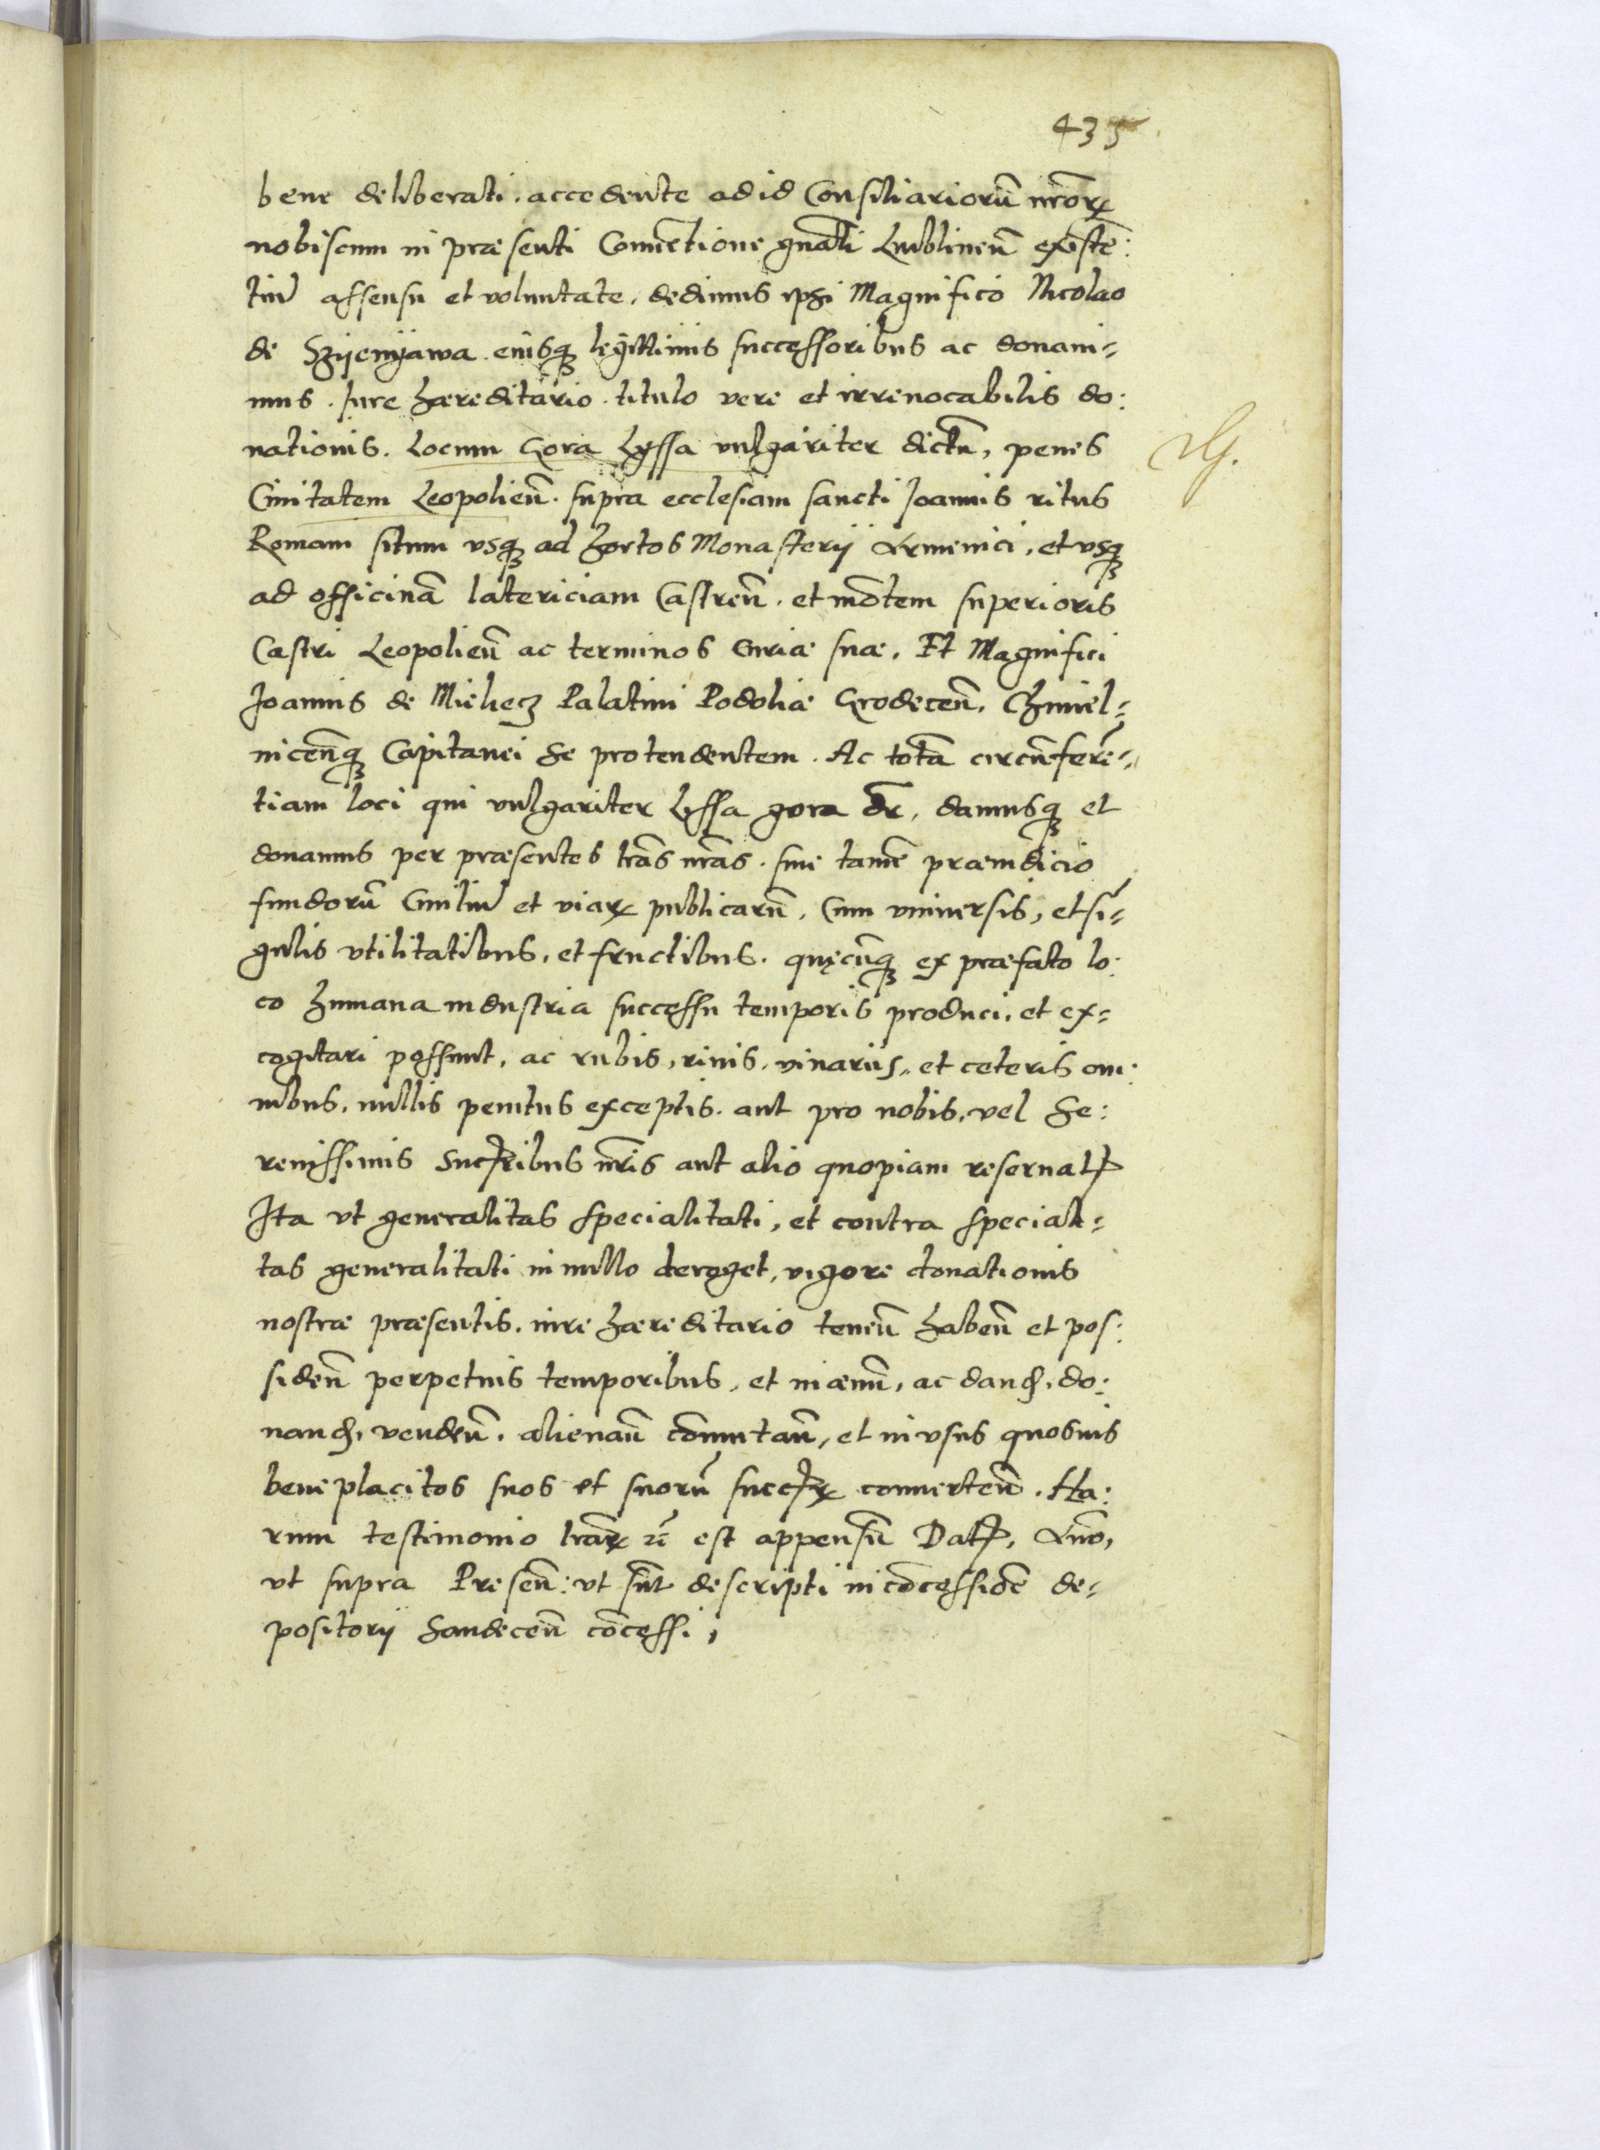 435
bene deliberati. accedente ad id Consiliariorũ nr̃orꝝ
nobiscum in præsenti Conuẽtione gnãli Lublineñ existẽ:
tiũ assensu et voluntate, dedimus ipsi Magnifico Nicolao
de Szyenyawa eiusqꝫ legittimis successoribus ac donaui-
mus. Iure hæreditario titulo vere et irreuocabilis do:
nationis. Locum Gora Lyssa vulgariter dictũ, penes
Ciuitatem Leopolieñ. supra ecclesiam sancti Joannis ritus
Romani situm vsqꝫ ad hortos Monasterij Armenici, et vsqꝫ
ad officinã latericiam Castreñ. et mõtem superioris
Castri Leopolieñ ac terminos Curiæ suæ. Et Magnifici
Joannis de Mielecz Palatini Podoliæ Grodeceñ. Chmiel-
niceñqꝫ Capitanei se protendentem. Ac totã circũferẽ-
tiam loci qui vulgariter Lyssa gora dr̃, damusqꝫ et
donamus per præsentes lrãs nrãs. sine tamẽ præiudicio
fundorũ Ciuiliũ et viarꝝ publicarũ, Cum vniuersis, et sĩ-
gulis vtilitatibus, et fructibus. quęcũqꝫ ex præfato lo:
co humana industria successu temporis produci, et ex-
cogitari possunt, ac rubis, riuis, vinariis, et ceteris om:
nibus, nullis penitus exceptis. aut pro nobis, vel Se:
renissimis Succr̃ibus nr̃is aut alio quopiam reseruatꝭ
Ita vt generalitas specialitati, et contra speciali-
tas generalitati in nullo deroget, vigore donationis
nostræ præsentis. iure hæreditario teneñ habeñ et pos:
sideñ perpetuis temporibus, et in æuum, ac danđ, do:
nanđ, vendeñ. alienañ cõmutañ, et in vsus quosuis
beneplacitos suos et suorũ succr̃ꝝ conuerteñ. Ha:
rum testimonio lrãrꝝ rẽ est appensũ Datꝭ, Anõ,
vt supra Preseñ: vt sũt descripti in cõcessiõe de-
positorij Sandeceñ cõcessi,